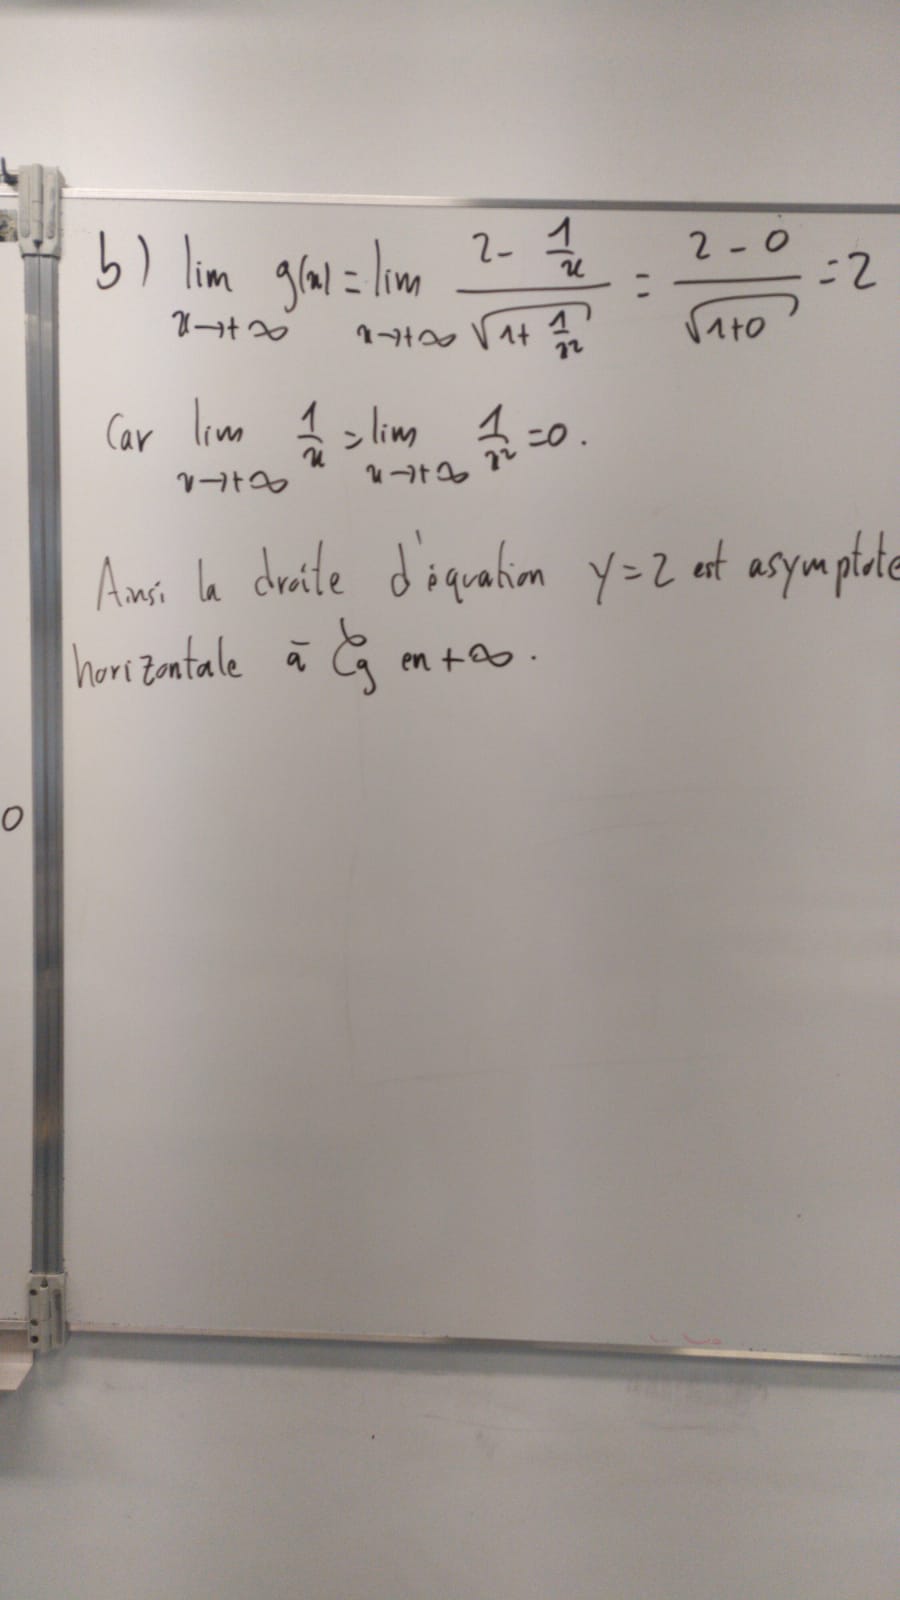 b) lim g(x) = lim (2 - 1/x)/(√(1 + 1/x²)) = (2 - 0)/(√(1+0)) = 2
x→+∞ x→+∞
Car lim 1/x = lim 1/x² = 0.
x→+∞ x→+∞
Ainsi la droite d'équation y = 2 est asymptote
horizontale à Cg en +∞.
0